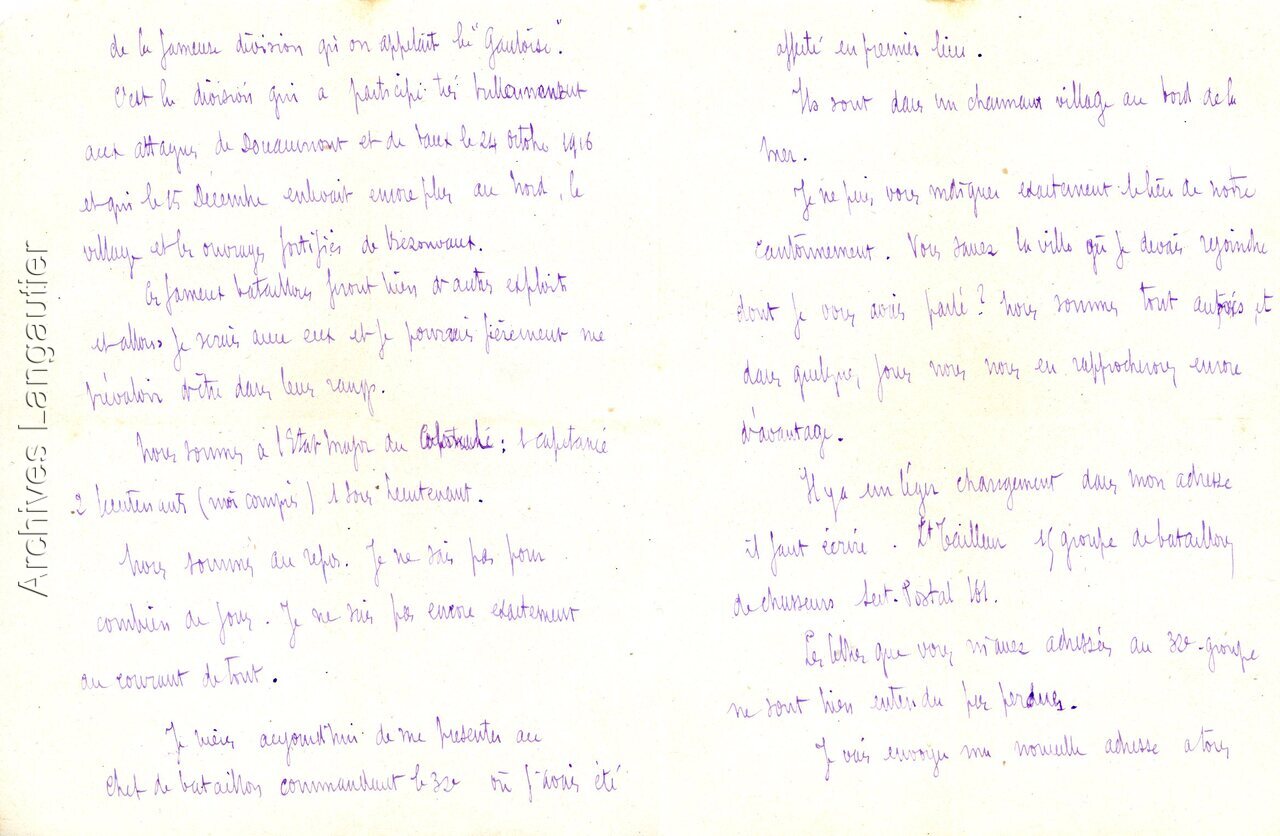 de la fameuse division qu'on appelait la "Gauloise".
C'est la division qui a participé très brillamment
aux attaques de Douaumont et de Vaux le 24 octobre 1916
et qui le 15 Décembre enlevait encore plus au Nord, le
village et les ouvrages fortifiés de Bezonvaux.
Ces fameux bataillons feront bien d'autres exploits
et allons je serais avec eux et je pourrais fièrement me
prévaloir d'être dans leurs rangs.
Nous sommes à l'Etat Major du : 1 capitaine
2 lieutenants (moi compris) 1 sous-lieutenant.
Nous sommes au repos. Je ne sais pas pour
combien de jours. Je ne sais pas encore exactement
au courant de tout.
Je viens aujourd'hui de me présenter au
Chef de bataillon commandant le 32e où j'avais été
affecté en premier lieu.
Ils sont dans un charmant village au bord de la
mer.
Je ne puis vous indiquer exactement le lieu de notre
cantonnement. Vous savez la ville où je devais rejoindre
dont je vous avais parlé? Nous sommes tout auprès et
dans quelques jours nous nous en rapprocherons encore
d'avantage.
Il y a un léger changement dans mon adresse
il faut écrire. Lt Tailleur 15 groupe de bataillons
de chasseurs Sect. Postal 161.
Les lettres que vous m'avez adressées au 32e groupe
ne sont bien entendu pas perdues.
Je vais envoyer ma nouvelle adresse a tous
Archives Langautier